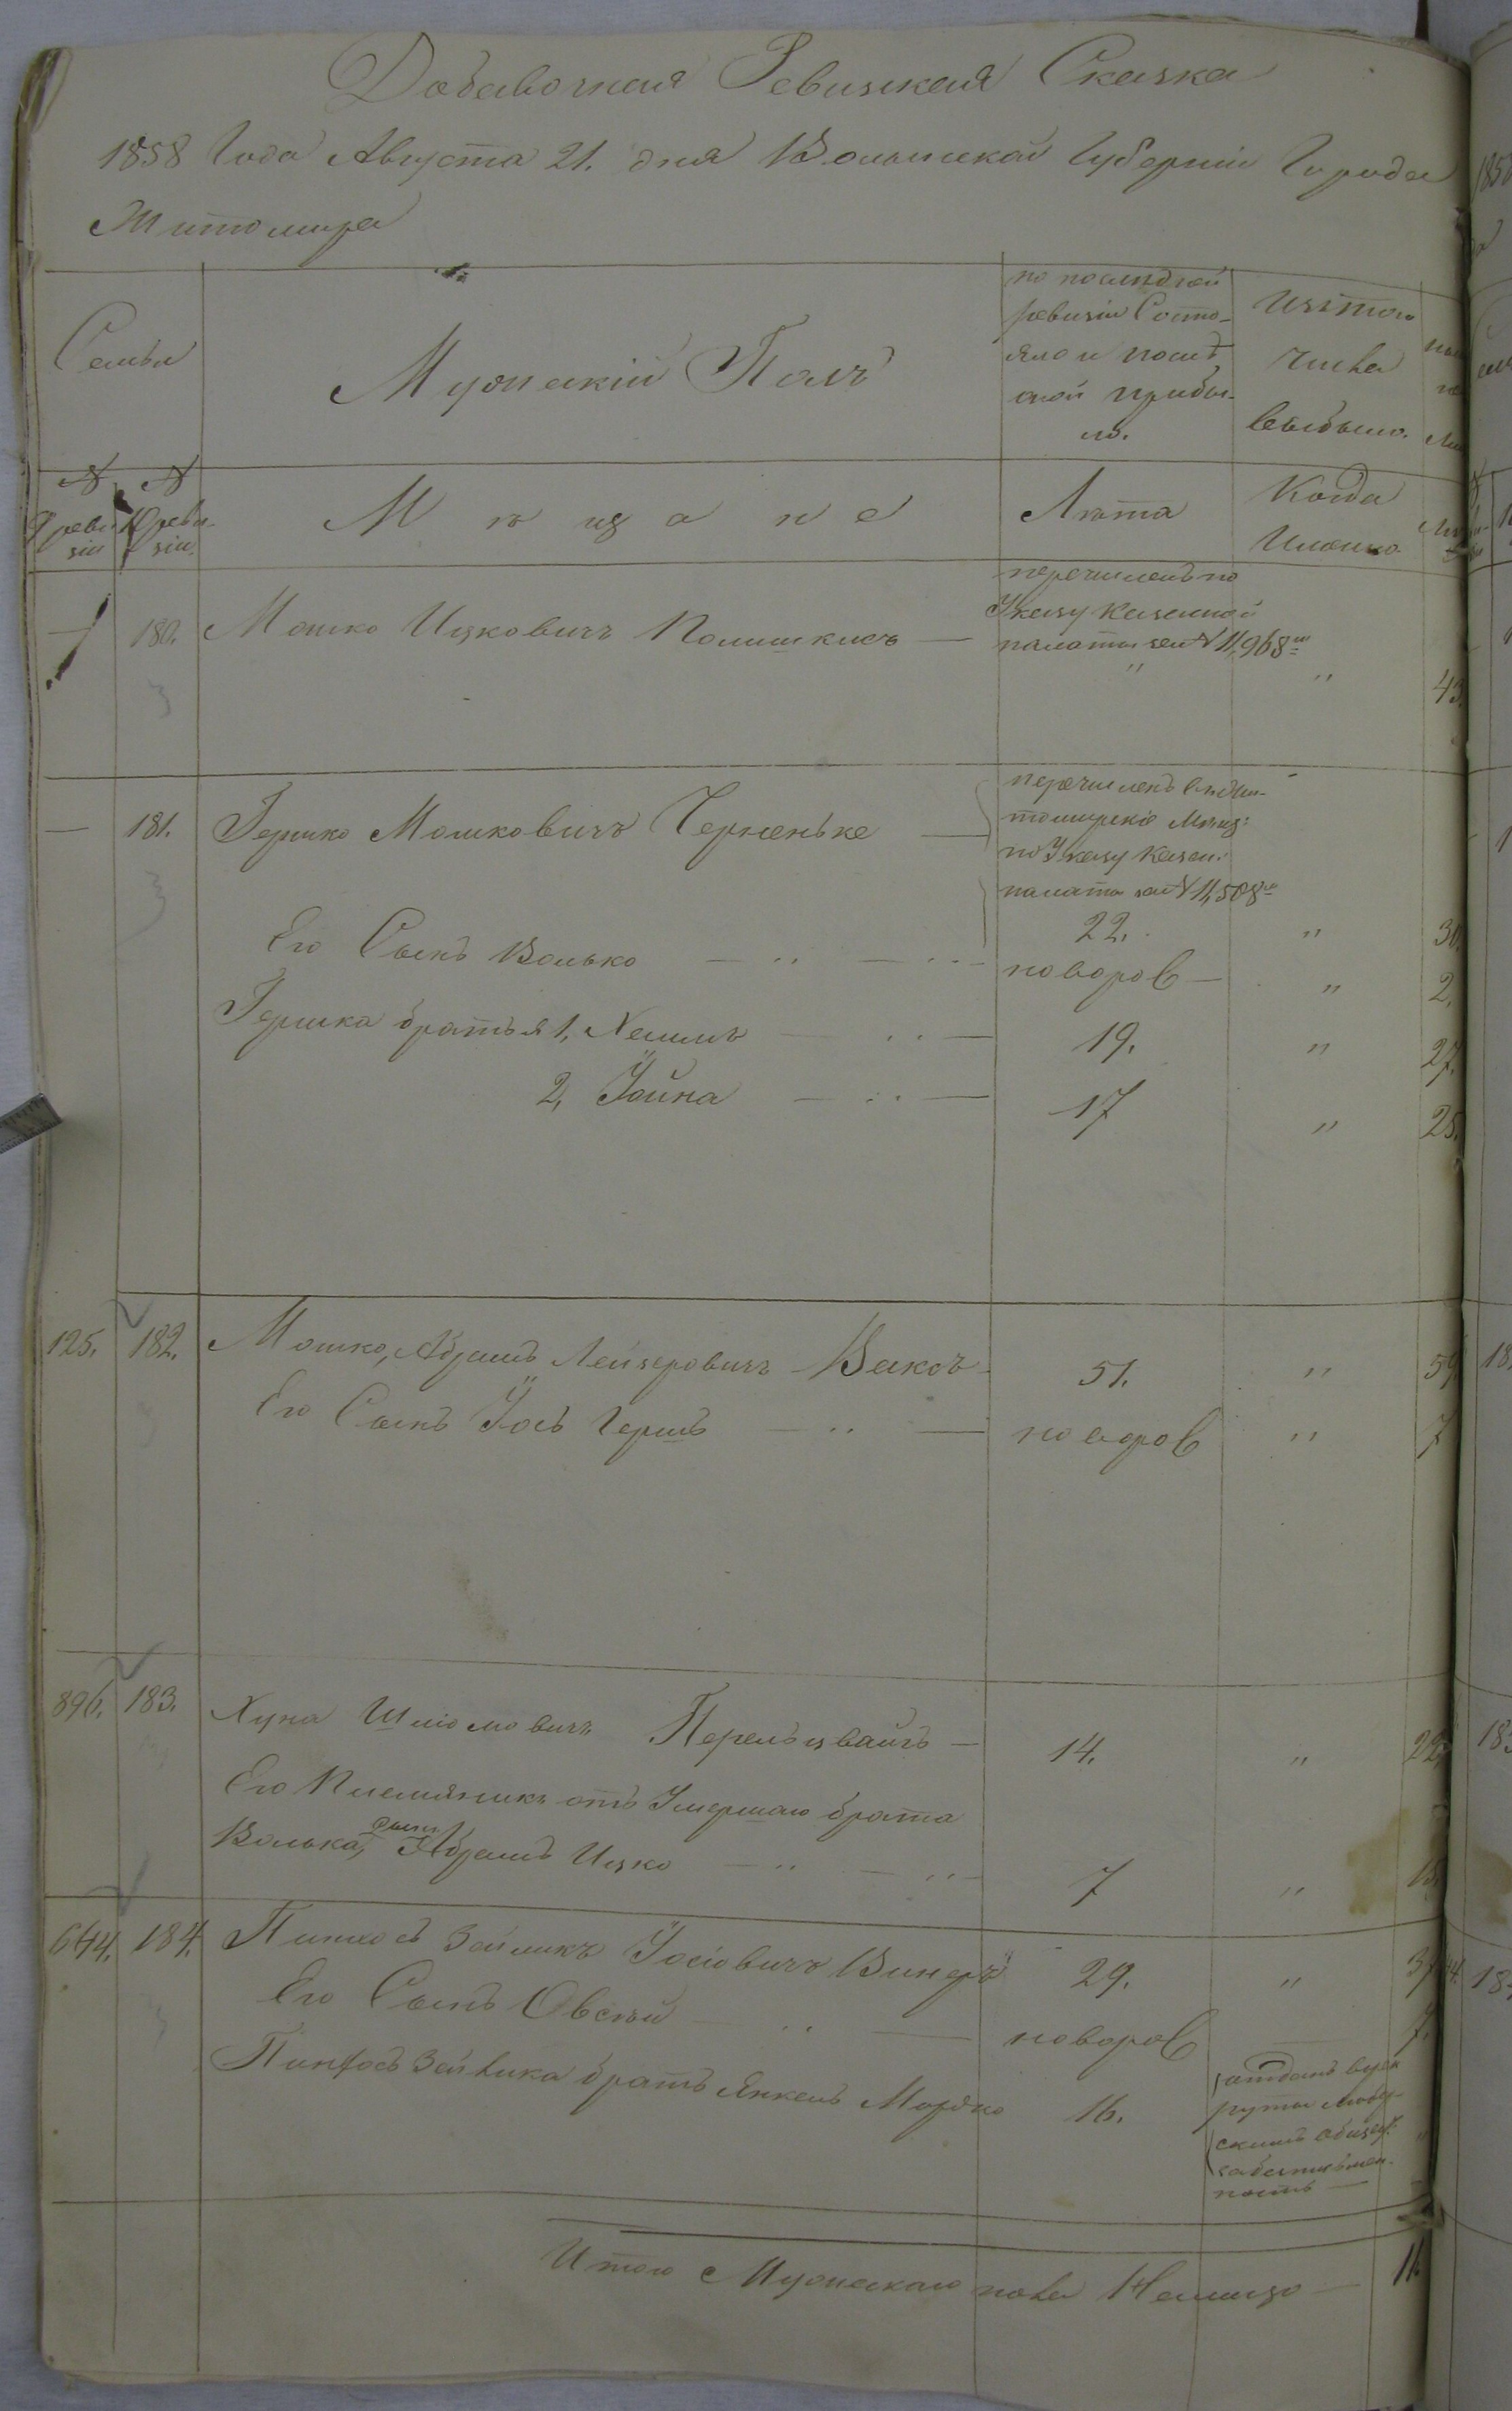 Добавочная Ревизская Сказка
1858 Года Августа 21. дня Волынской Губернии Города
Житомира
Семьи
Мужескій Полъ
по последней
ревизіи Состо-
яло и послѣ
оной прибы-
ло.
Изъ того
числа
выбыло.
№ №
9 реви
зіи
10 реви-
зіи
Мѣщане
Лѣта
Когда
Именно
— 180. Мошко Ицковичъ Полишкисъ —
перечисленъ по
Указу Казенной
палаты за № 11,968
" " 43.
— 181. Гершко Мошковичъ Черненьке —
перечисленъ въ Жи-
томирскіе Мѣщ:
по Указу Казен.
палаты за № 11,508
22. " 30.
Его Сынъ Волько — новорož — " 2.
Гершка братья 1, Хаимъ — 19. " 27.
2, Іойна — 17 " 25.
125. 182. Мошко, Абрамъ Лейзеровичъ Ваксъ 51. " 59
Его Сынъ Іось Гершъ — новоров " 7
896. 183. Хуна Шліомовичъ Перельцвайгъ — 14. " 22
Его Племянникъ отъ Умершаго брата
Волька, сынъ Абрамъ Ицко — 7 " 15
644. 184. Пинхосъ Зейликъ Іосіовичъ Винеръ 29. " 37
Его Сынъ Овсѣй — новоров — 7.
Пинхосъ Зейлика братъ Янкель Мордко 16.
отданъ въ рек
руты
скимъ Общес:
за безписьмен-
ность —
Итого Мужескаго пола Налицо — 11.